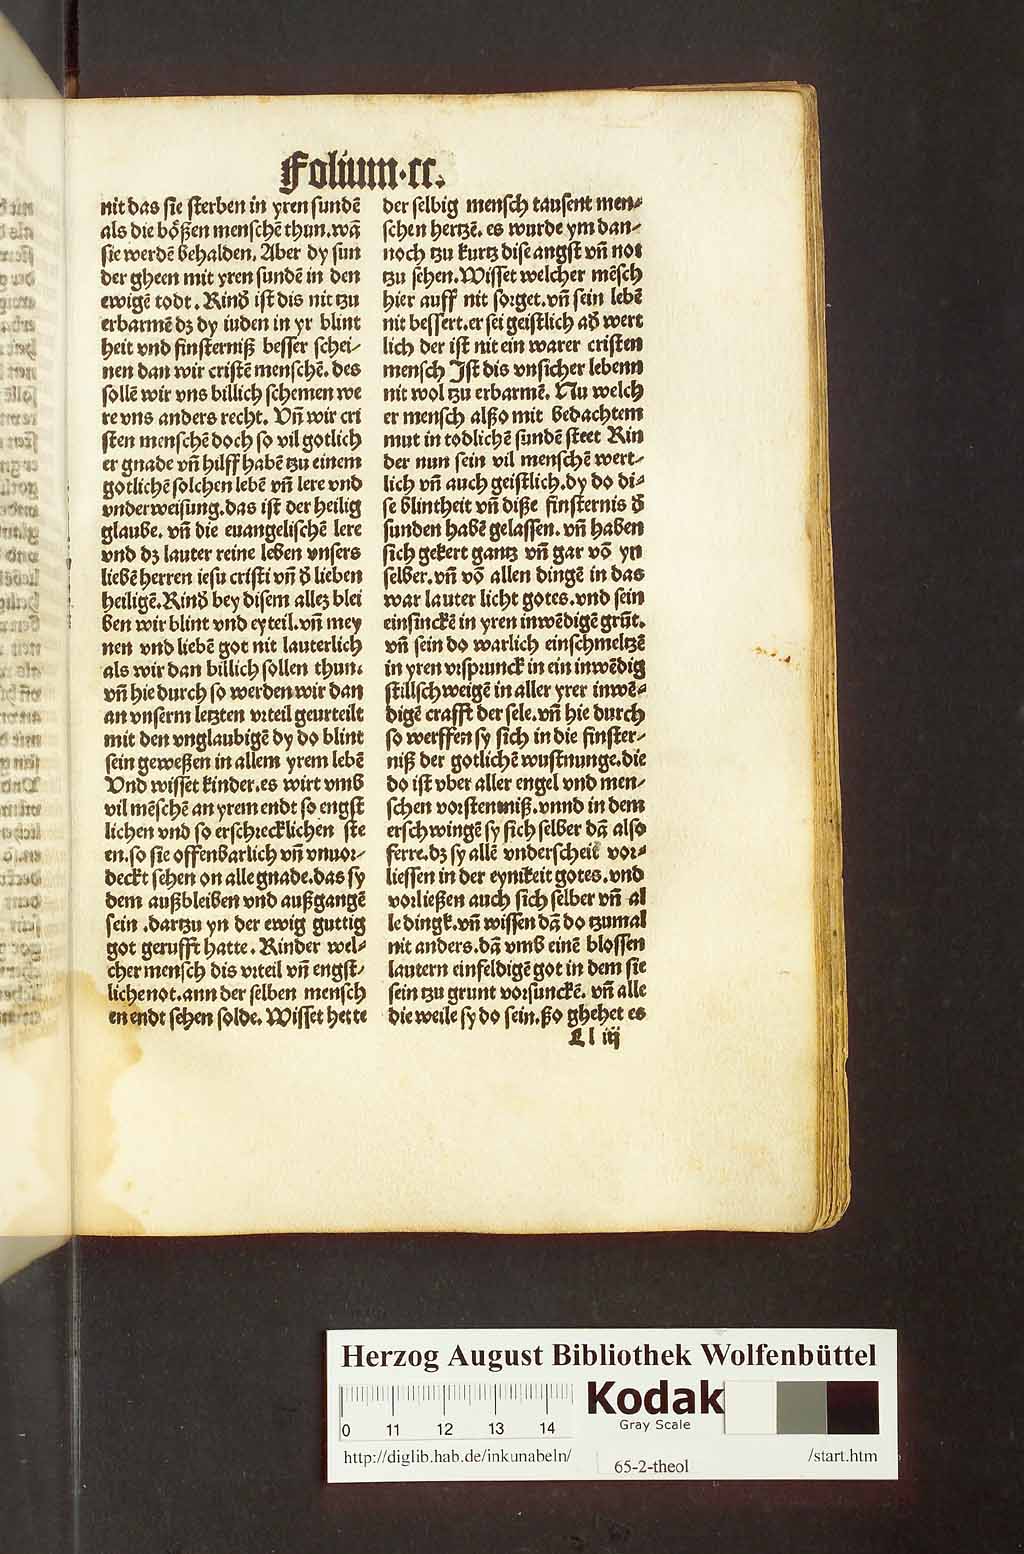 Folium·cc.
nit das sie sterben in yren sundē
als die bößen menschē thun.wā
sie werdē behalden. Aber dy sun
der gheen mit yren sundē in den
ewigē todt. Kinď ist dis nit tzu
erbarmē dz dy iuden in yr blint
heit vnd finsterniß besser schei-
nen dan wir cristē menschē. des
sollē wir vns billich schemen we
re vns anders recht. Vn̄ wir cri
sten menschē doch so vil gotlich
er gnade vn̄ hilff habē tzu einem
gotlichē solchen lebē vn̄ lere vnd
vnderweisung.das ist der heilig
glaube. vn̄ die euangelischē lere
vnd dz lauter reine leben vnsers
liebē herren iesu cristi vn̄ ď lieben
heiligē.Kinď bey disem allez blei
ben wir blint vnd eyteil.vn̄ mey
nen vnd liebē got nit lauterlich
als wir dan billich sollen thun.
vn̄ hie durch so werden wir dan
an vnserm letzten vrteil geurteilt
mit den vnglaubigē dy do blint
sein geweßen in allem yrem lebē
Vnd wisset kinder.es wirt vmb
vil mēschē an yrem endt so engst
lichen vnd so erschrecklichen ste
en.so sie offenbarlich vn̄ vnuor-
deckt sehen on alle gnade.das sy
dem außbleiben vnd außgangē
sein .dartzu yn der ewig guttig
got gerufft hatte. Kinder wel-
cher mensch dis vrteil vn̄ engst-
liche not.ann der selben mensch
en endt sehen solde. Wisset hette
der selbig mensch tausent men-
schen hertzē. es wurde ym dan-
noch tzu kurtz dise angst vn̄ not
tzu sehen.Wisset welcher mēsch
hier auff nit sorget.vn̄ sein lebē
nit bessert.er sei geistlich ad' wert
lich der ist nit ein warer cristen
mensch Ist dis vnsicher lebenn
nit wol tzu erbarmē. Nu welch
er mensch alßo mit bedachtem
mut in todlichē sundē steet Kin
der nun sein vil menschē wert-
lich vn̄ auch geistlich.dy do di-
se blintheit vn̄ diße finsternis ď
sunden habē gelassen. vn̄ haben
sich gekert gantz vn̄ gar vō yn
selber.vn̄ vō allen dingē in das
war lauter licht gotes.vnd sein
einsinckē in yren inwēdigē grūt.
vn̄ sein do warlich einschmeltzē
in yren vrsprunck in ein inwēdig
stillschweigē in aller yrer inwē-
digē crafft der sele.vn̄ hie durch
so werffen sy sich in die finster-
niß der gotlichē wustnunge.die
do ist vber aller engel vnd men-
schen vorstentniß.vnnd in dem
erschwingē sy sich selber dā also
ferre.dz sy allē vnderscheit vor-
liessen in der eynikeit gotes.vnd
vorließen auch sich selber vn̄ al
le dingk.vn̄ wissen dā do tzumal
nit anders.dā vmb einē blossen
lautern einfeldigē got in dem sie
sein tzu grunt vorsunckē. vn̄ alle
die weile sy do sein.ßo ghehet es
Ll iij
Herzog August Bibliothek Wolfenbüttel
0 11 12 13 14
Kodak
Gray Scale
http://diglib.hab.de/inkunabeln/
65-2-theol
/start.htm